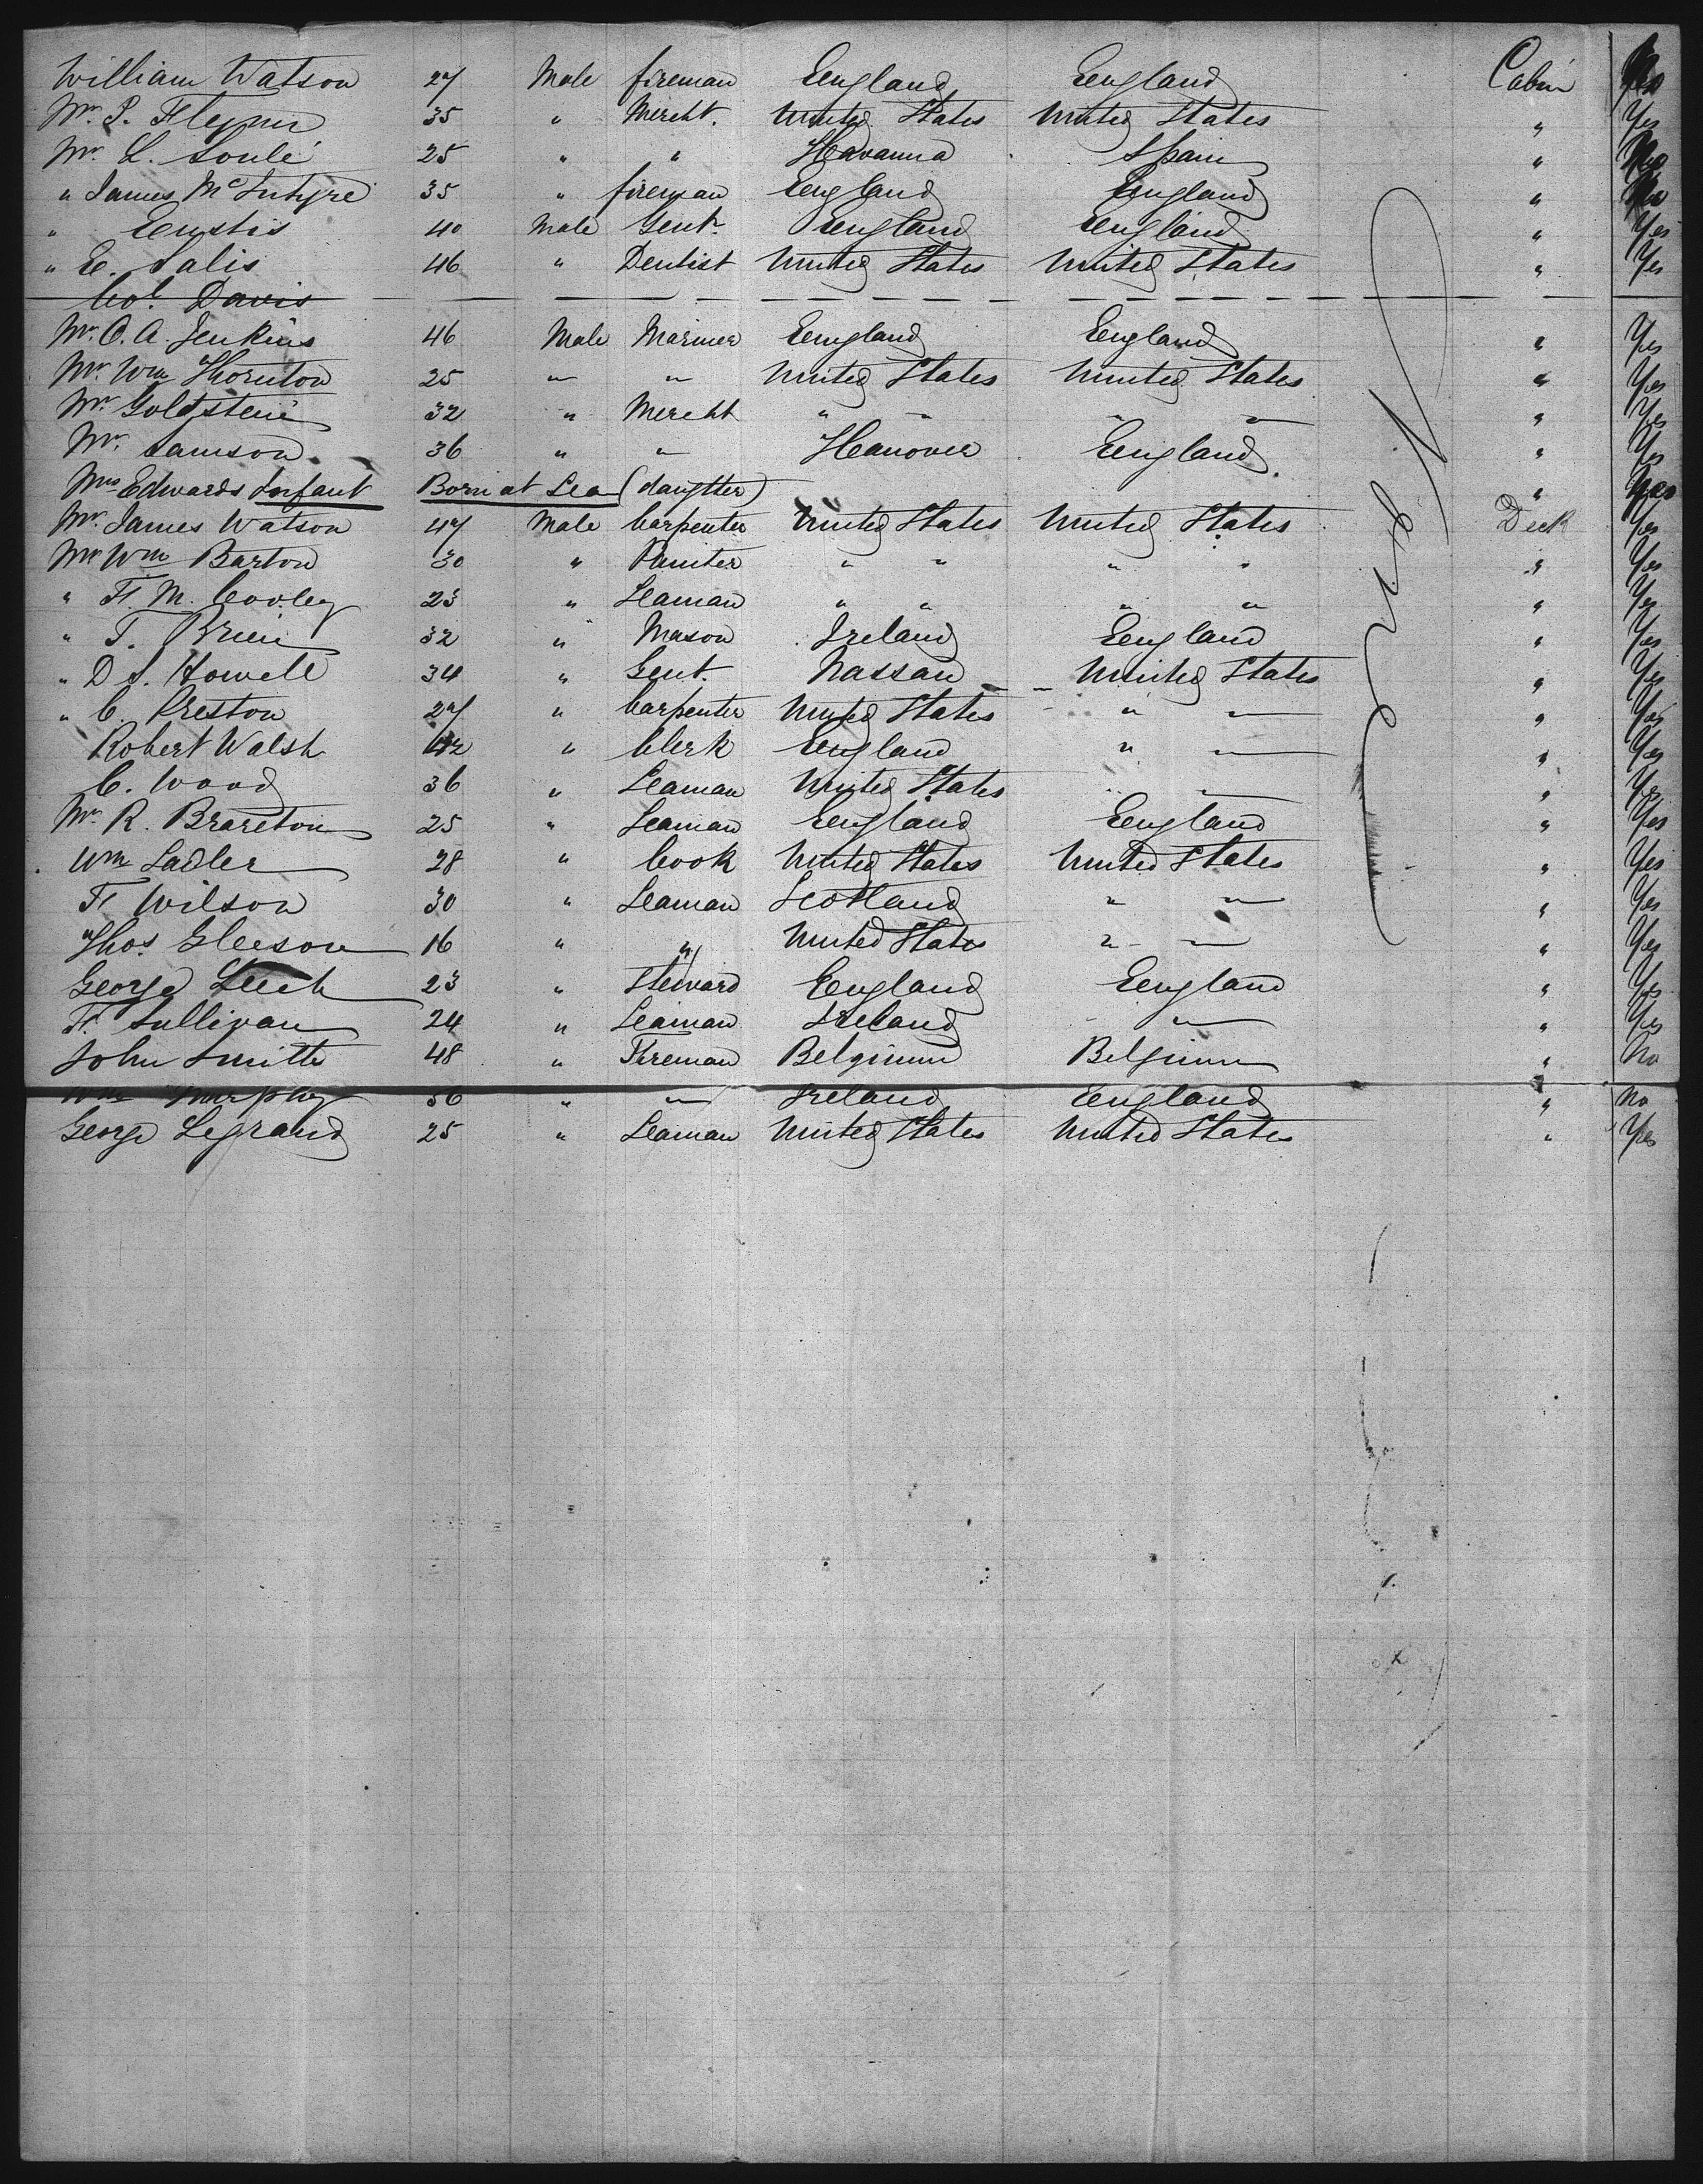 William Watson 27 Male fireman England England Cabin
Mr. P. 35 " Mercht. United States United States " Yes
Mr. L. Soulé 25 " " Havanna Spain "
" James McIntyre 35 " fireman England England "
" Eustis 40 Male Gent. England England " Yes
" E. Salis 46 " Dentist United States United States " Yes
Col. Davis
Mr. C. A. Jenkins 46 Male Mariner England England " Yes
Mr. Wm Thornton 25 " " United States United States " Yes
Mr. Goldstein 32 " Mercht " " " " " Yes
Mr. Samson 36 " " Hanover England " Yes
Mrs Edwards Infant Born at Sea (daughter) " Yes
Mr. James Watson 47 Male Carpenter United States United States Deck Yes
Mr Wm Barton 30 " Painter " " " " " Yes
" F. M. Cooley 23 " Seaman " " " " " Yes
" T. Brien 32 " Mason Ireland England " Yes
" D S. Howell 34 " Gent. Nassau United States " Yes
" C. Preston 27 " Carpenter United States " " " Yes
Robert Walsh 42 " Clerk England " " " Yes
C. Wood 36 " Seaman United States " " " Yes
Mr. R. Brareton 25 " Seaman England England " Yes
Wm Sadler 28 " Cook United States United States " Yes
F Wilson 30 " Seaman Scotland " " " Yes
Thos. Gleeson 16 " " United States " " " Yes
George Leech 23 " Steward England England " Yes
F. Sullivan 24 " Seaman Ireland " " Yes
John Smith 48 " Fireman Belginum Belginum " No
Wm Murphy 36 " " Ireland England " No
George Legrand 25 " Seaman United States United States " Yes